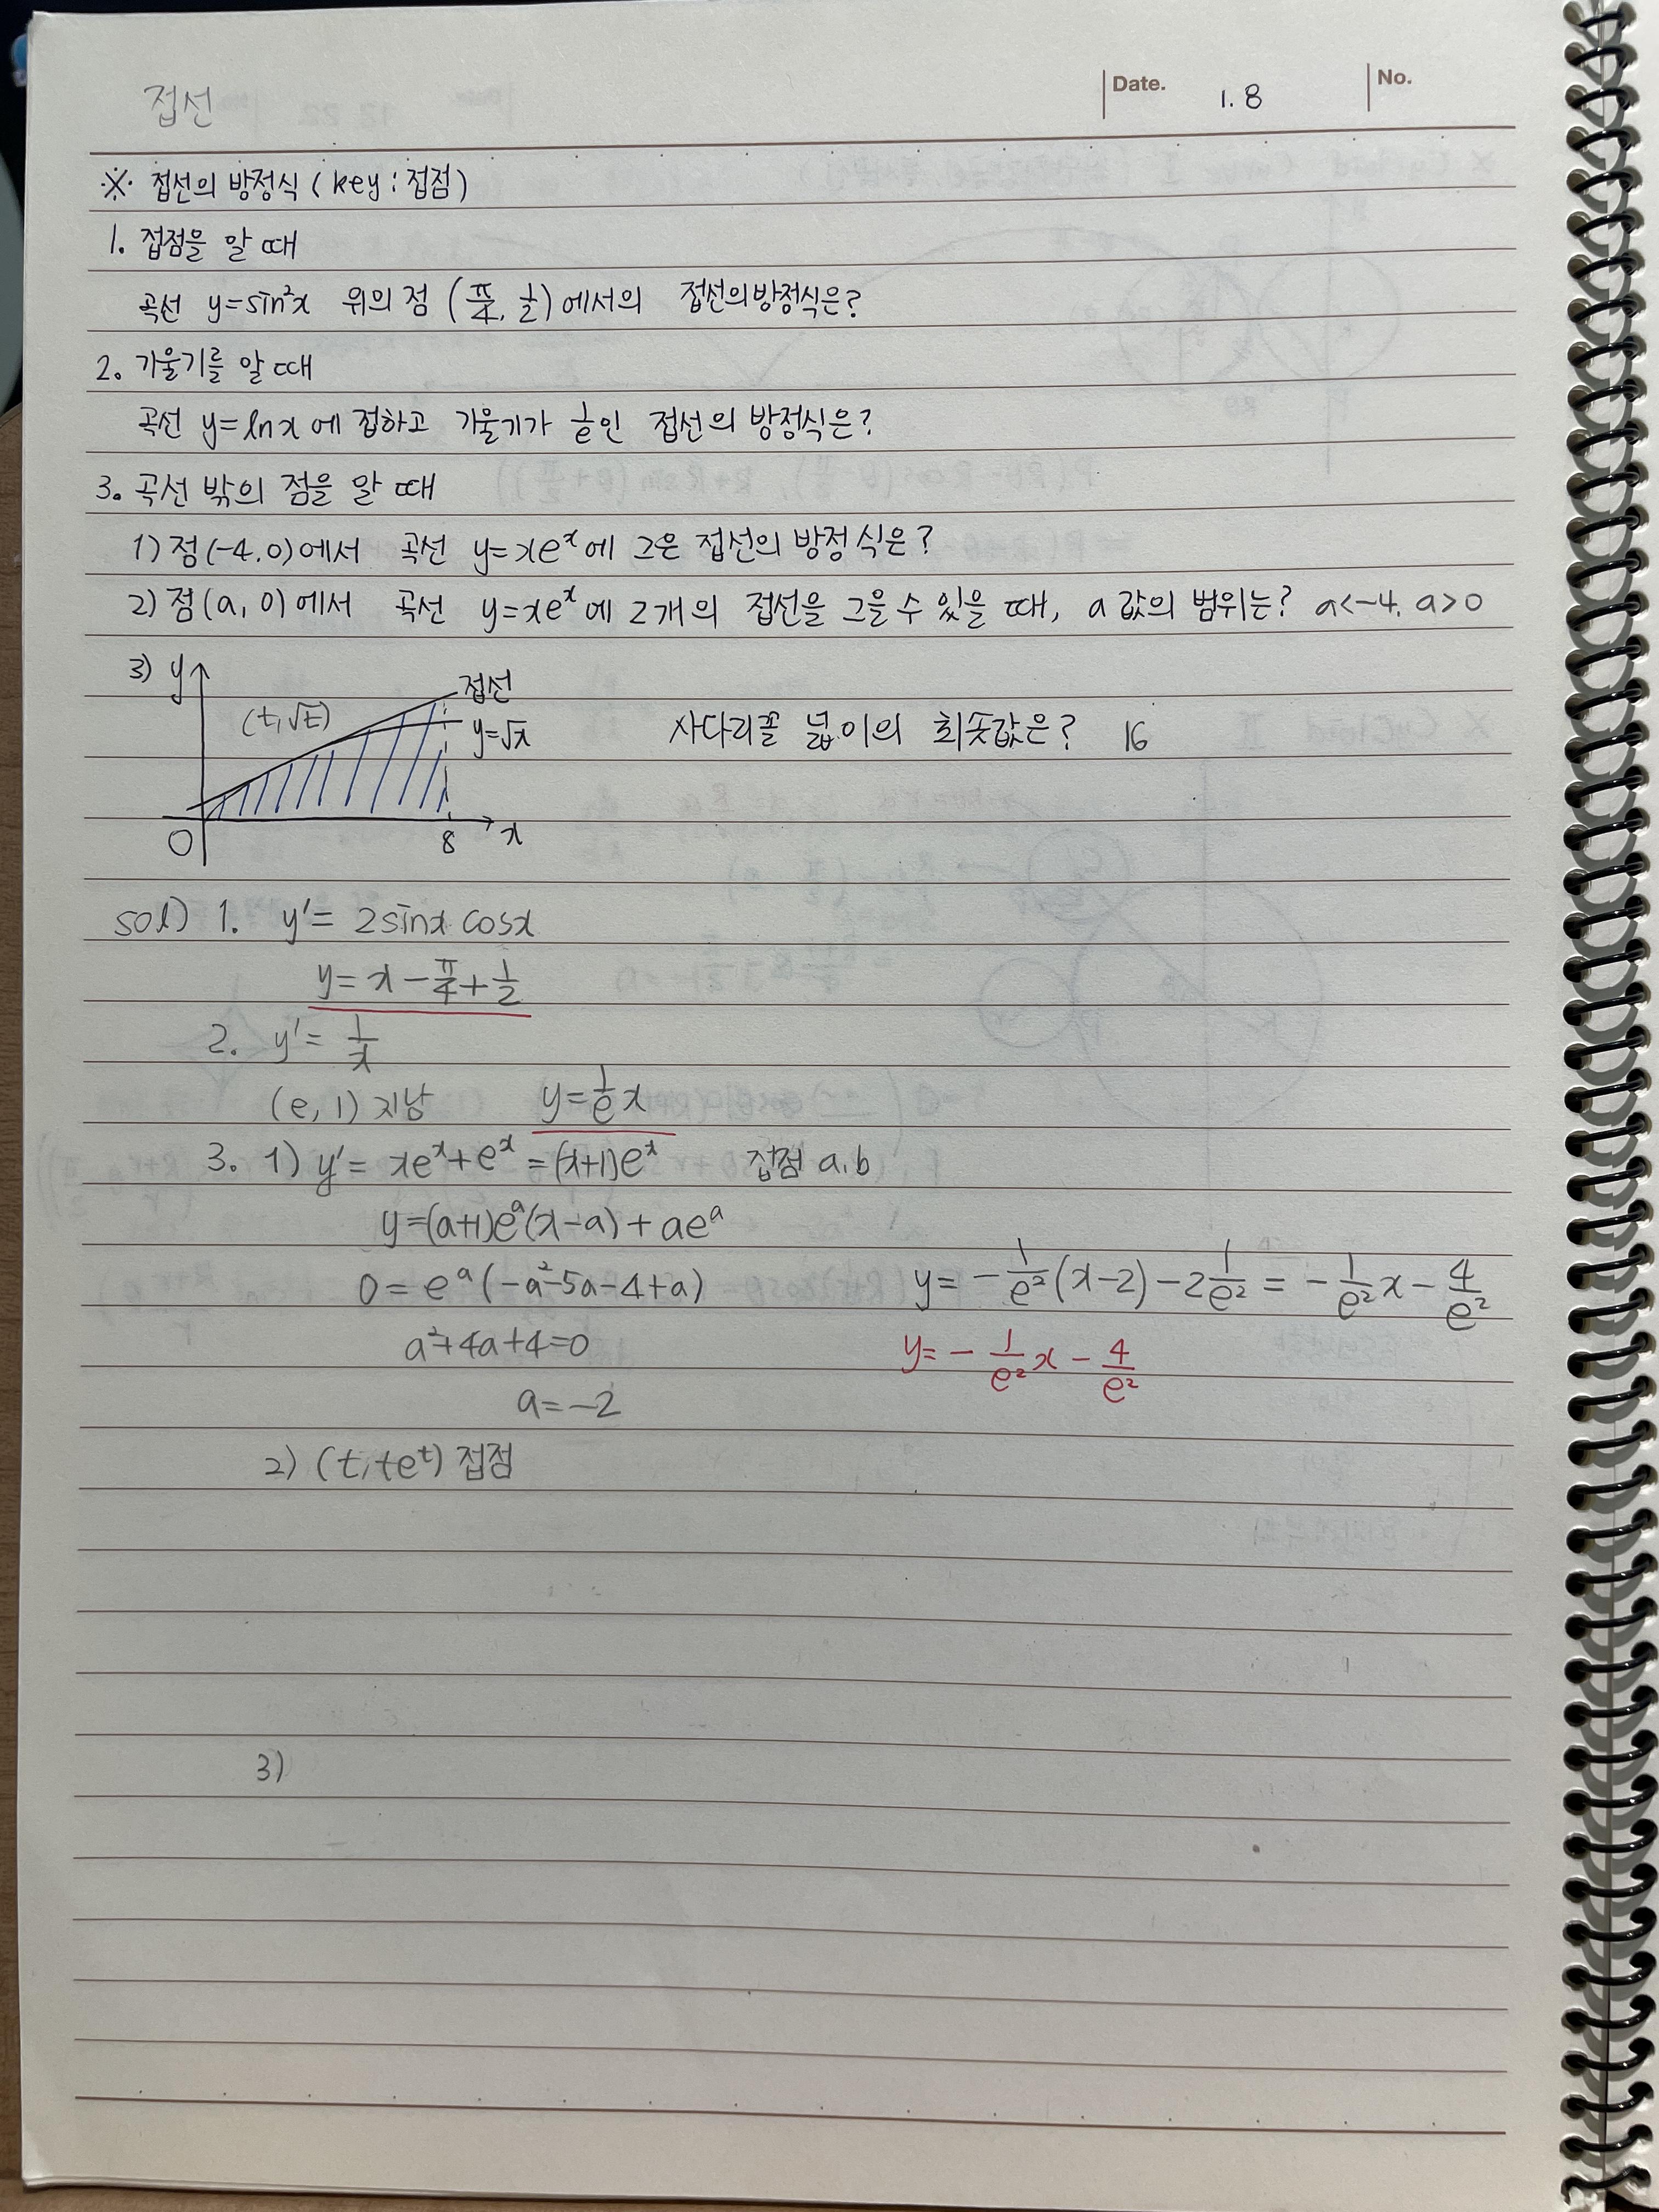 접선
Date. 1. 8 No.
※ 접선의 방정식 (key : 접점)
1. 접점을 알 때
곡선 y=sin²x 위의 점 (π/4, 1/2)에서의 접선의 방정식은?
2. 기울기를 알 때
곡선 y=lnx에 접하고 기울기가 1/e인 접선의 방정식은?
3. 곡선 밖의 점을 알 때
1) 점(-4, 0)에서 곡선 y=xeˣ에 그은 접선의 방정식은?
2) 점(a, 0)에서 곡선 y=xeˣ에 2개의 접선을 그을 수 있을 때, a 값의 범위는? a<-4, a>0
3) y
접선
(t, √t)
y=√x
사다리꼴 넓이의 최솟값은? 16
O 8 x
sol) 1. y'= 2sinx cosx
y= x - π/4 + 1/2
2. y'= 1/x
(e, 1) 지남 y= 1/e x
3. 1) y'= xeˣ+eˣ =(x+1)eˣ 접점 a, b
y=(a+1)eᵃ(x-a) + aeᵃ
0 = eᵃ (-a²-5a-4+a) y= - 1/e² (x-2) -2 1/e² = - 1/e² x - 4/e²
a²+4a+4=0 y= - 1/e² x - 4/e²
a=-2
2) (t, teᵗ) 접점
3)